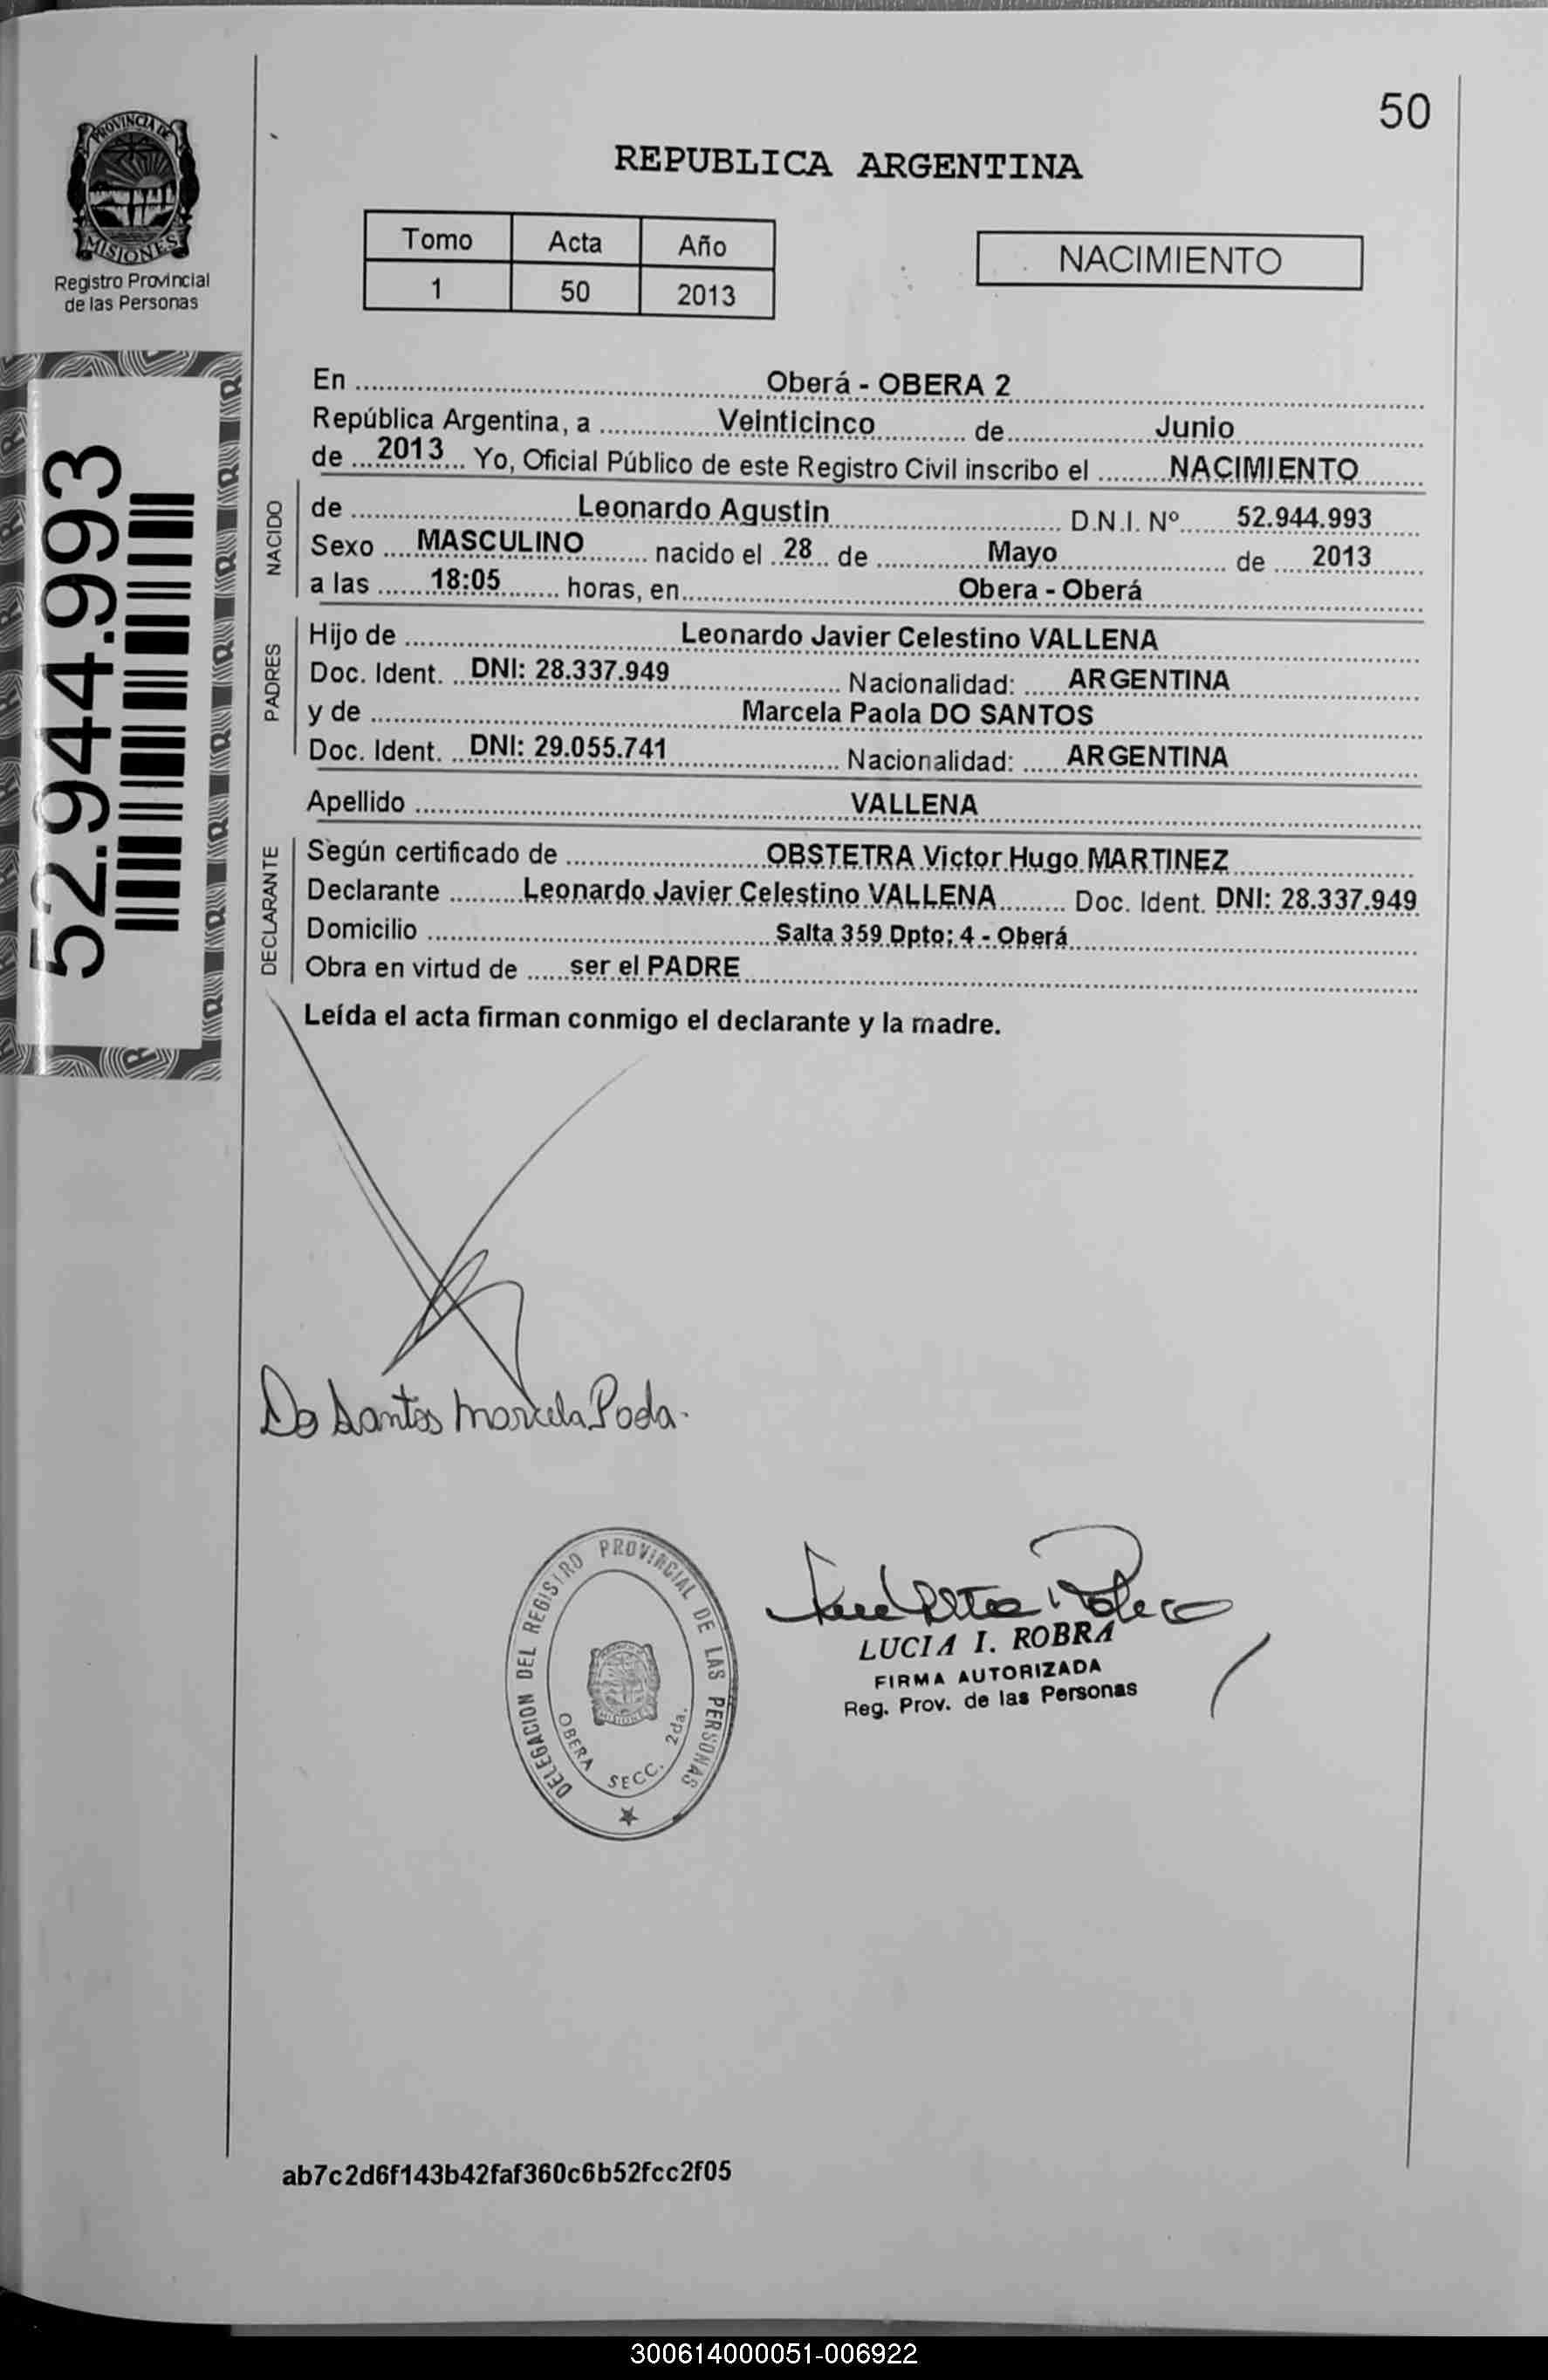 50
PROVINCIA DE
MISIONES
Registro Provincial
de las Personas
REPUBLICA ARGENTINA
Tomo Acta Año
1 50 2013
NACIMIENTO
52.944.993
En Oberá - OBERA 2
República Argentina, a Veinticinco de Junio
de 2013 Yo, Oficial Público de este Registro Civil inscribo el NACIMIENTO
NACIDO
de Leonardo Agustin D.N.I. Nº 52.944.993
Sexo MASCULINO nacido el 28 de Mayo de 2013
a las 18:05 horas, en Obera - Oberá
PADRES
Hijo de Leonardo Javier Celestino VALLENA
Doc. Ident. DNI: 28.337.949 Nacionalidad: ARGENTINA
y de Marcela Paola DO SANTOS
Doc. Ident. DNI: 29.055.741 Nacionalidad: ARGENTINA
Apellido VALLENA
DECLARANTE
Según certificado de OBSTETRA Victor Hugo MARTINEZ
Declarante Leonardo Javier Celestino VALLENA Doc. Ident. DNI: 28.337.949
Domicilio Salta 359 Dpto: 4 - Oberá
Obra en virtud de ser el PADRE
Leída el acta firman conmigo el declarante y la madre.
Do Santos Marcela Paola.
DELEGACION DEL REGISTRO PROVINCIAL DE LAS PERSONAS
MISIONES
OBERA SECC. 2da.
LUCIA I. ROBRA
FIRMA AUTORIZADA
Reg. Prov. de las Personas
ab7c2d6f143b42faf360c6b52fcc2f05
300614000051-006922